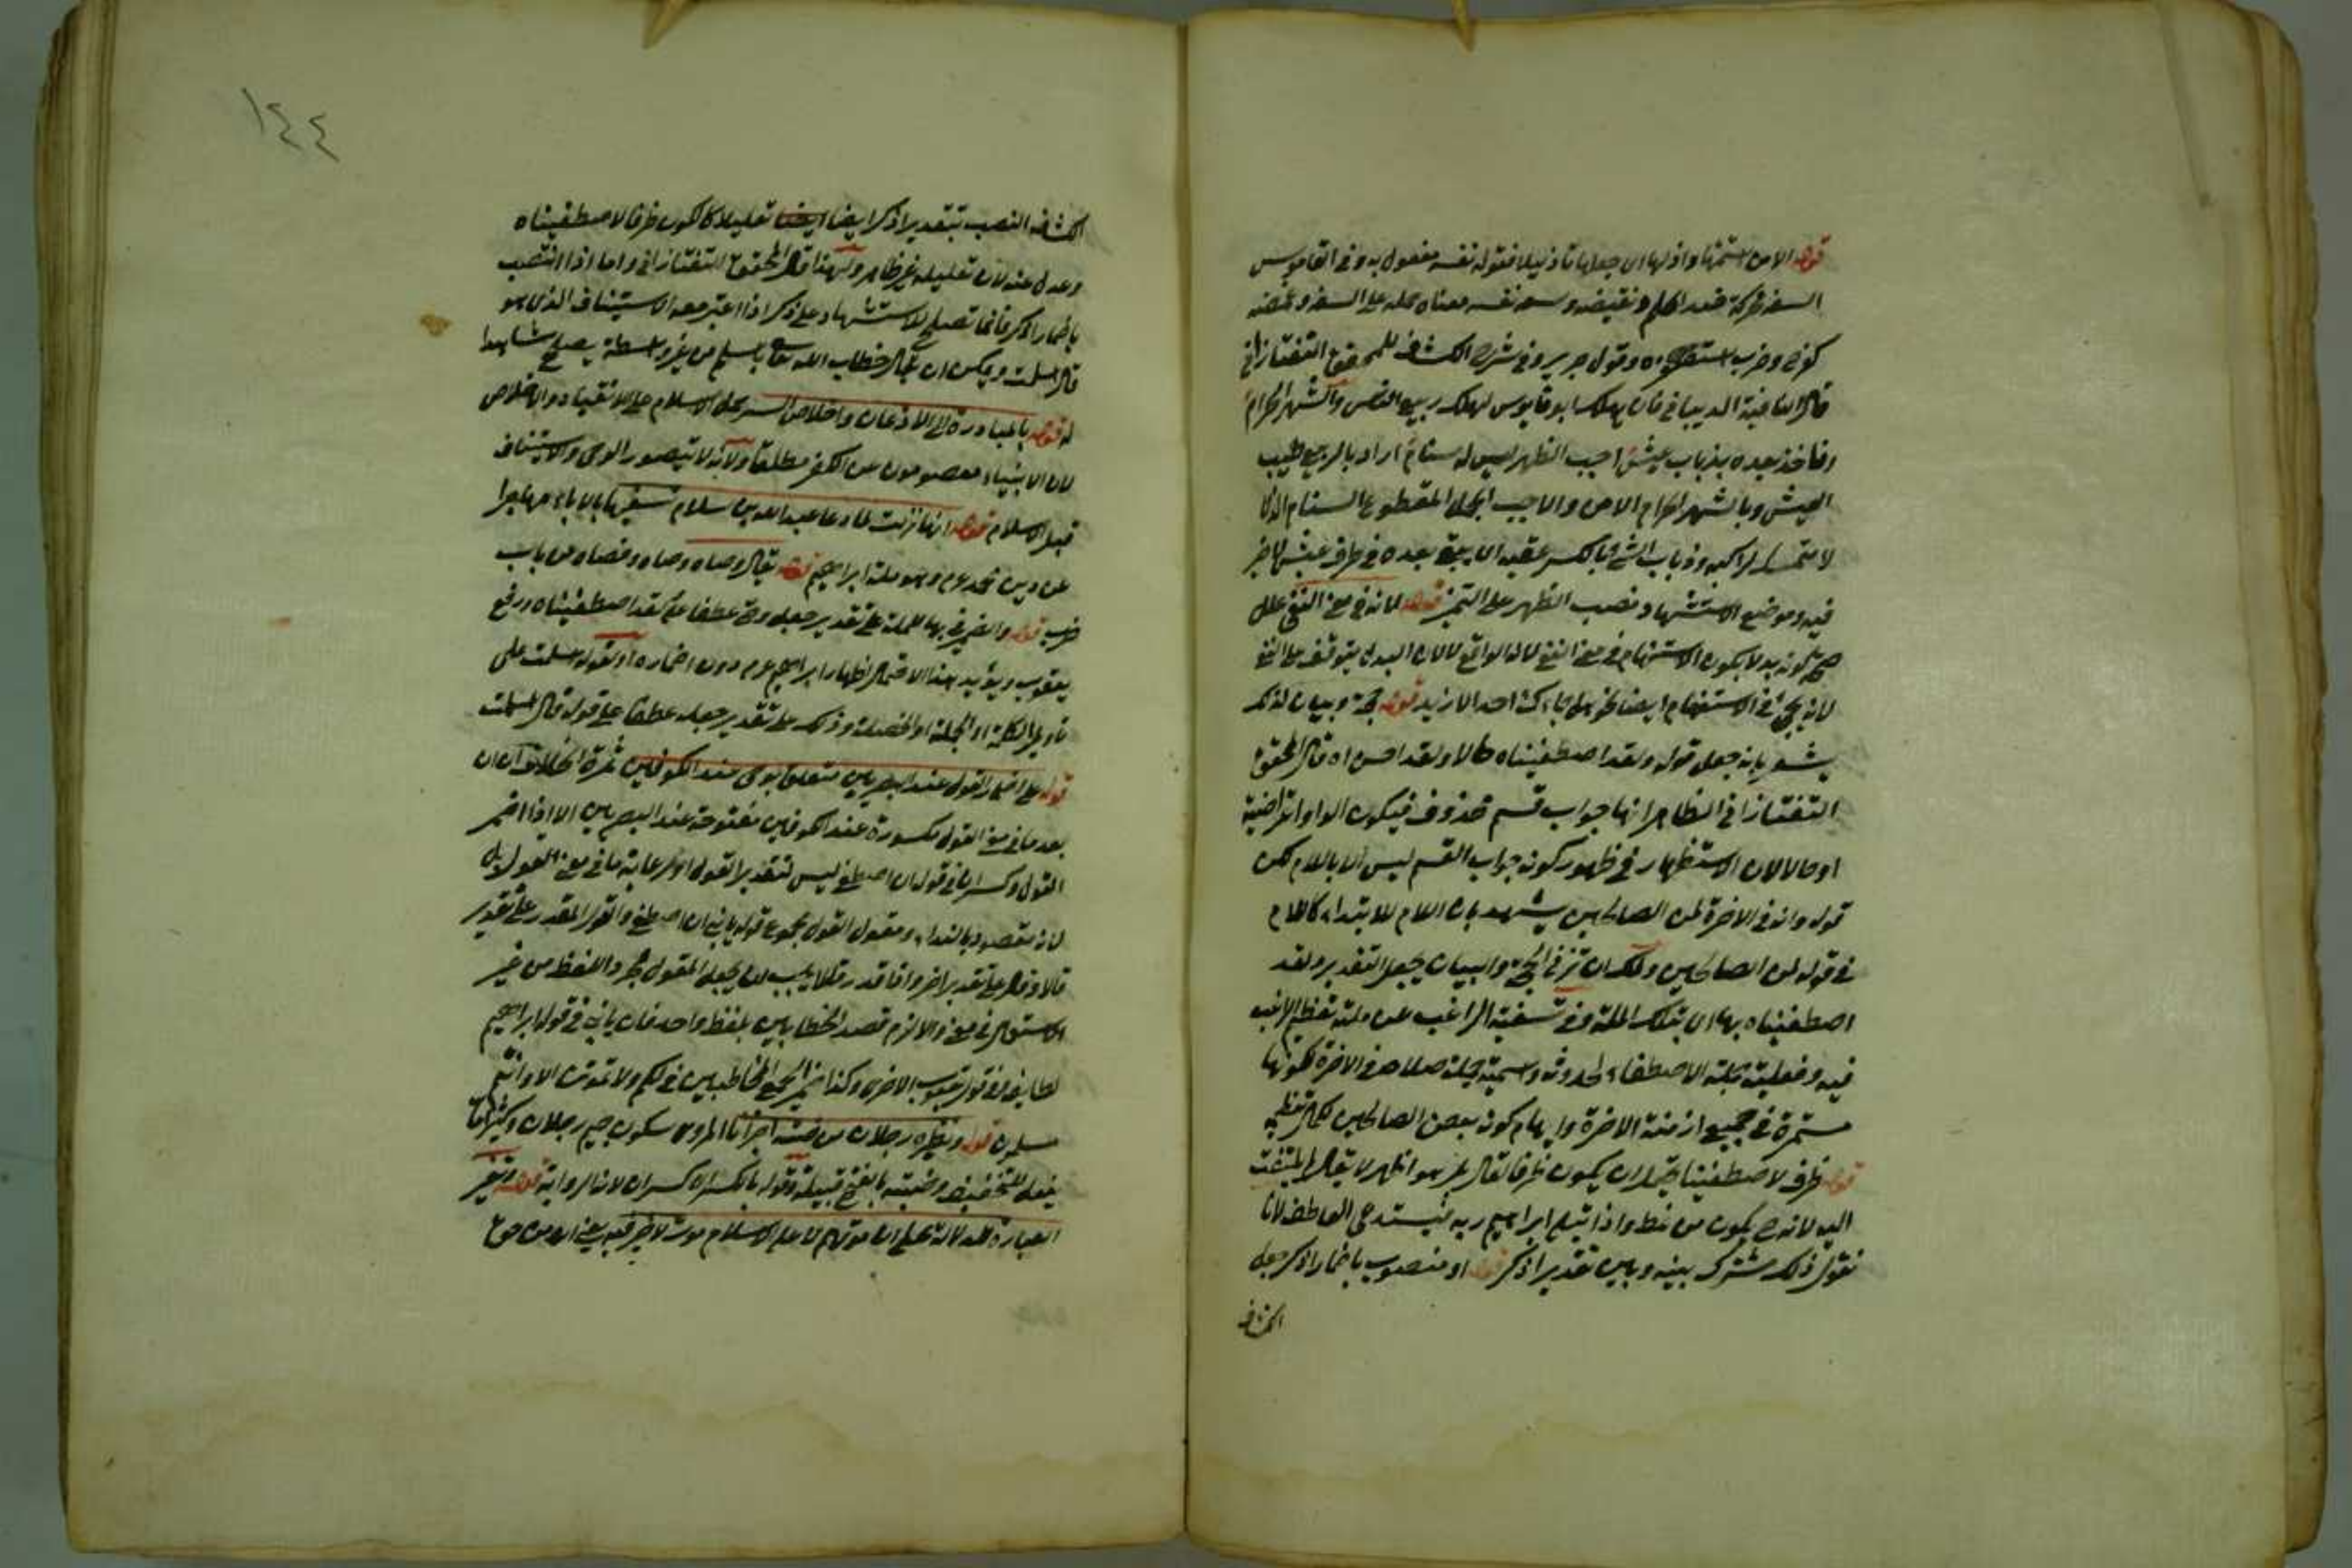 قوله الا من استمهنها واذلها اى جعلها تأذليلا فقوله نفسه مفعول به وفى القاموس
السفه محركة ضد الحلم ونقيضه وسفه نفسه معناه حمله على السفه وغضه
كفرح وضرب استحقره وقول جرير وفى شرح الكشاف للمحقق التفتازانى
قال النابغة الذبيانى فان يهلك ابو قابوس يهلك ربيع الناس والشهر الحرام
ونأخذ بعده بذناب عيش اجب الظهر ليس له سنام اراد بالربيع طيب
العيش وبالشهر الحرام الامن والاجب الجمل المقطوع السنام الذى
لا متمسك لراكبه وذناب الشئ بالكسر عقبه اى يبقى بعده فى طرف عيش لا خير
فيه وموضع الاستشهاد نصب الظهر على التميز قوله لانه فى معنى النفى علل
صحة كونه بدلا بكون الاستفهام فى معنى النفى لانه الواقع لا لان البدل يتوقف على النفى
لانه يجئ فى الاستفهام ايضا نحو هل جاءك احد الا زيد قوله حجة وبيان لذلك
يشعر بانه جعل قوله ولقد اصطفيناه حالا ولقد احسن اه قال المحقق
التفتازانى الظاهر انها جواب قسم محذوف فيكون الواو اعتراضية
او حالا لان الاستظهار فى ظهور كونه جواب القسم ليس الا باللام لكن
قوله وانه فى الاخرة لمن الصالحين يشهد بان اللام للابتداء كاللام
فى قوله لمن الصالحين ولك ان تزد فى الحجة والبيان بجعل التقدير ولقد
اصطفيناه بها اى بتلك الملة وفى تسفيه الراغب عن ملته تعظيم الراغب
فيه وفعلية جملة الاصطفاء لحدوثه واسمية جملة صلاحه فى الاخرة لكونها
مستمرة فى جميع ازمنة الاخرة وايهام كونه بعض الصالحين لكمال تعظيم
قوله ظرف لاصطفيناه يحتمل ان يكون ظرفا لقال بل هو اظهر لا يقال لم يلتفت
اليه لانه ح يكون من نمط واذ ابتلى ابراهيم ربه فيستدعى العاطف لانا
نقول ذلك مشترك بينه وبين تقدير اذكر قوله او منصوب باضمار اذكر جعل
الكشاف
١٤٤
الكشاف النصب بتقدير اذكر ايضا تعليلا كالكون ظرفا لاصطفيناه
وعدل عنه لان تعليله غير ظاهر ولهذا قال المحقق التفتازانى واما اذا انتصب
باضمار اذكر فانما تصلح للاستشهاد على ذكر اذا اعتبر معه الاستيناف الذى هو
قال اسلمت ويمكن ان يقال خطاب الله تعالى باسلم من غير واسطة يصلح شاهدا
له قوله بالمبادرة الى الاذعان واخلاص السر حمل الاسلام على الانقياد والاخلاص
لان الانبياء معصومون عن الكفر مطلقا ولانه لا يتصور الوحى والاستيناف
قبل الاسلام قوله انها نزلت لما دعا عبد الله بن سلام سفيها بالاباء مهاجرا
عن دين محمد عم وهو ملة ابراهيم قوله يقال وصاه وصاه وفصاه من باب
ضرب قوله والضمير فى بها للملة على تقدير جعل وصى عطفا على لقد اصطفيناه ورفع
يعقوب ويؤيد هذا الاحتمال اظهار ابراهيم عم دون اضماره او لقوله اسلمت على
تأويل الكلمة او الجملة او الخصلة وذلك على تقدير جعله عطفا على قوله قال اسلمت
قوله على اضمار القول عند البصريين متعلق بوصى عند الكوفيين ثمرة الخلاف ان ان
بعد ما فى معنى القول مكسورة عند الكوفيين مفتوحة عند البصريين الا اذا اضمر
القول وكسرها فى قوله ان اصطفى ليس لتقدير القول او رعاية ما فى معنى القول بل
لانه مقصود بالنداء ومقول القول مجموع قوله يا بنى ان اصطفى والقول المقدر على تقدير
قالا وقال على تقدير اخر واذا قدر قلا يجب ان يجعل المقول مجرد اللفظ من غير
استعمال فى معنى والا لزم قصد الخطابين بلفظ واحد فان يا بنى فى قول ابراهيم
لطايفة وفى قول يعقوب لاخرى وكذا ضمير الجمع المخاطبين فى لكم ولا تموتن الا وانتم
مسلمون قوله ونظيره رجلان من ضبة اخبرانا المروى سكون جيم رجلان وكثيرا ما
يفعل للتخفيف وضبة بالفتح قبيلة وقوله بالكسر اى كسر ان لانا الرواية قوله وتغيير
العبارة للدلالة على ان موتهم لا على الاسلام موت لا خير فيه يعنى ان من حق